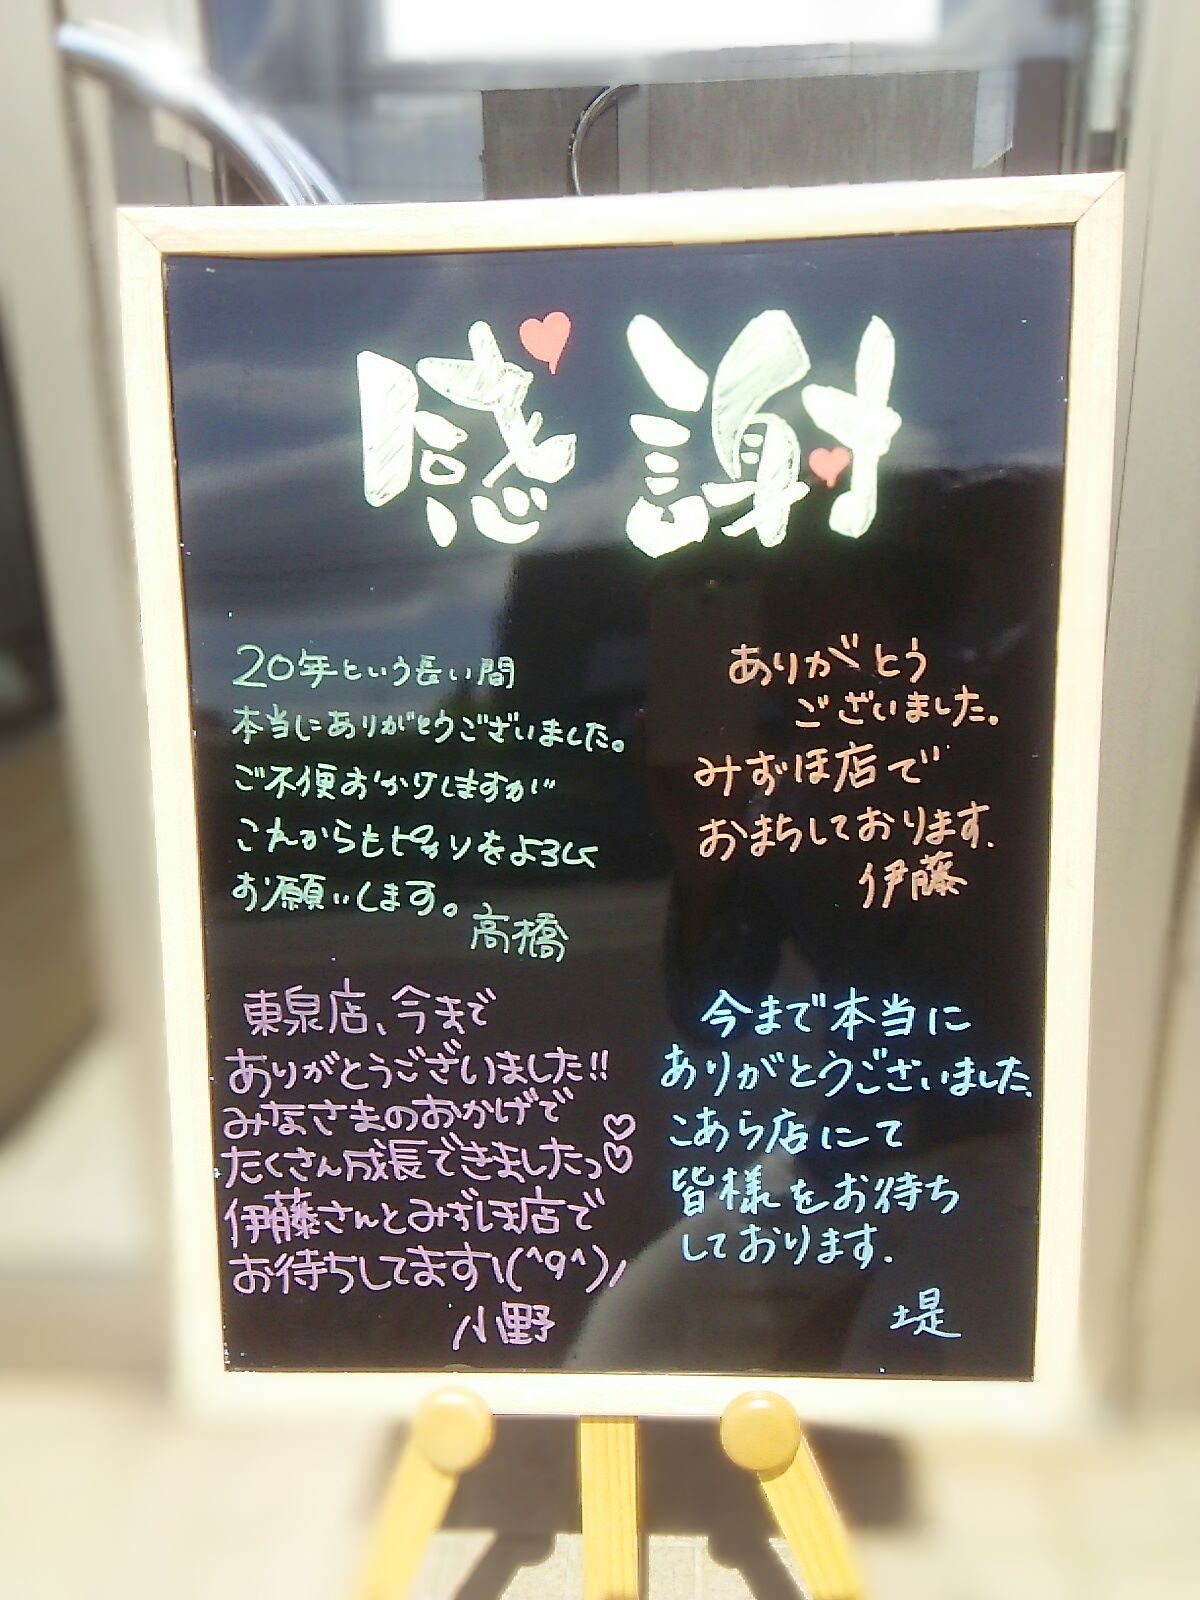 感謝
20年という長い間
本当にありがとうございました。
ご不便おかけしますが
これからもピッツリをよろしく
お願いします。
高橋
ありがとう
ございました。
みずほ店で
おまちしております.
伊藤
東泉店、今まで
ありがとうございました!!
みなさまのおかげで
たくさん成長できましたっ♡♡
伊藤さんとみずほ店で
お待ちしてます\(^9^)/
小野
今まで本当に
ありがとうございました.
こあら店にて
皆様をお待ち
しております.
堤